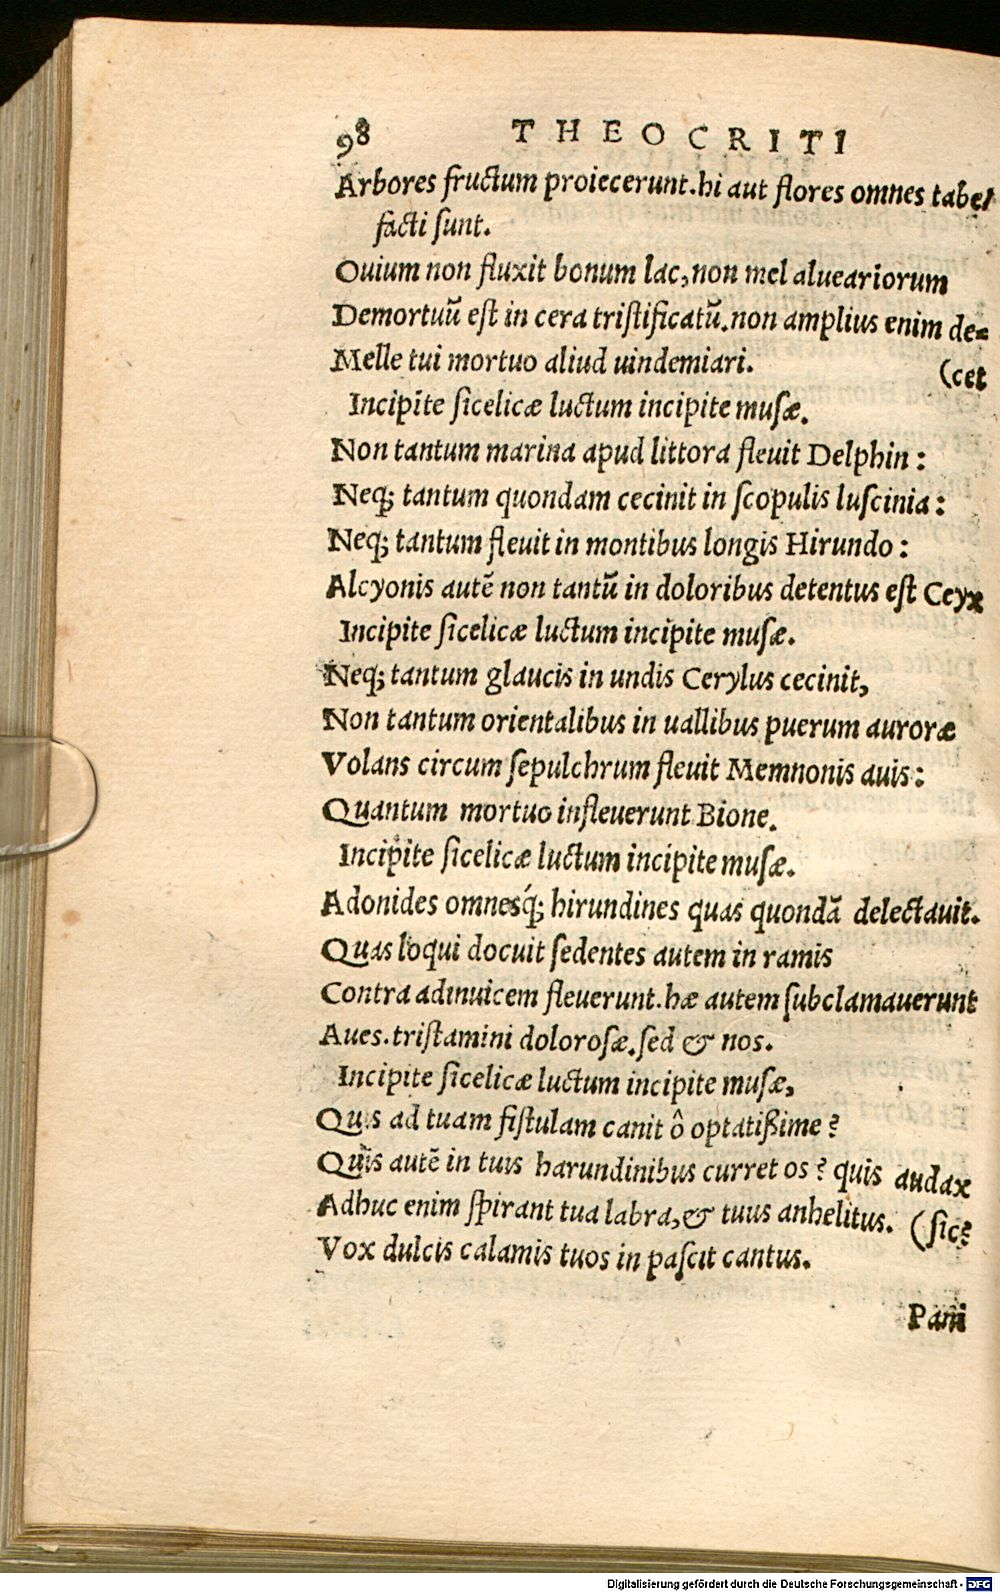 98 THEOCRITI
Arbores fructum proiecerunt. hi aut flores omnes tabe/
facti sunt.
Ouium non fluxit bonum lac, non mel alueariorum
Demortuū est in cera tristificatū. non amplius enim de=
Melle tui mortuo aliud uindemiari. (cet
Incipite sicelicæ luctum incipite musæ.
Non tantum marina apud littora fleuit Delphin:
Neq; tantum quondam cecinit in scopulis luscinia:
Neq; tantum fleuit in montibus longis Hirundo:
Alcyonis autē non tantū in doloribus detentus est Ceyx
Incipite sicelicæ luctum incipite musæ.
Neq; tantum glaucis in undis Cerylus cecinit,
Non tantum orientalibus in uallibus puerum auroræ
Volans circum sepulchrum fleuit Memnonis auis:
Quantum mortuo infleuerunt Bione.
Incipite sicelicæ luctum incipite musæ.
Adonides omnesq́; hirundines quas quondā delectauit.
Quas loqui docuit sedentes autem in ramis
Contra adinuicem fleuerunt. hæ autem subclamauerunt
Aues. tristamini dolorosæ. sed & nos.
Incipite sicelicæ luctum incipite musæ,
Quis ad tuam fistulam canit ô optatißime?
Quis autē in tuis harundinibus curret os? quis audax
Adhuc enim spirant tua labra, & tuus anhelitus. (sic?
Vox dulcis calamis tuos in pascit cantus.
Pani
Digitalisierung gefördert durch die Deutsche Forschungsgemeinschaft - DFG